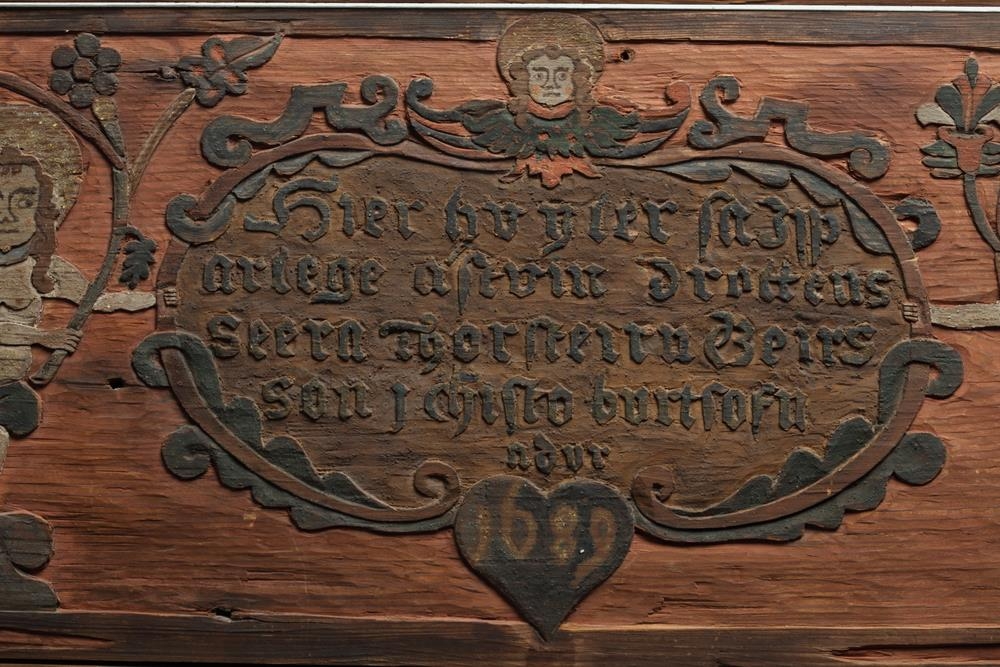 Hier hvyler sa Jpp
arlege astvin drottens
Seera Thorsteirn Geirs
son j christo burtsofn
advr
1689